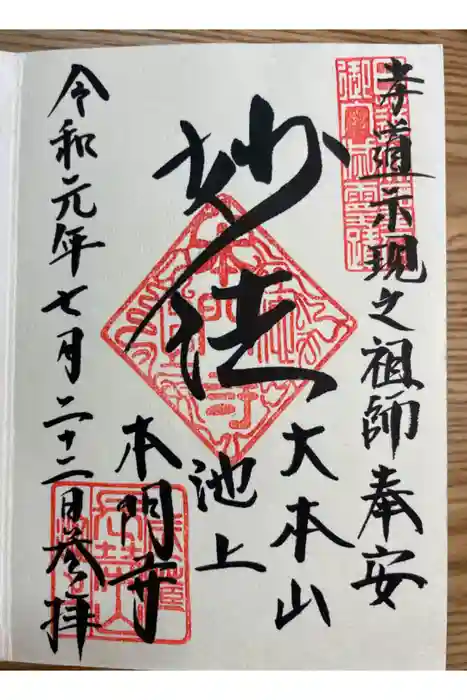 孝道示現之祖師奉安
妙法
大本山
池上
本門寺
令和元年七月二十二日参拝